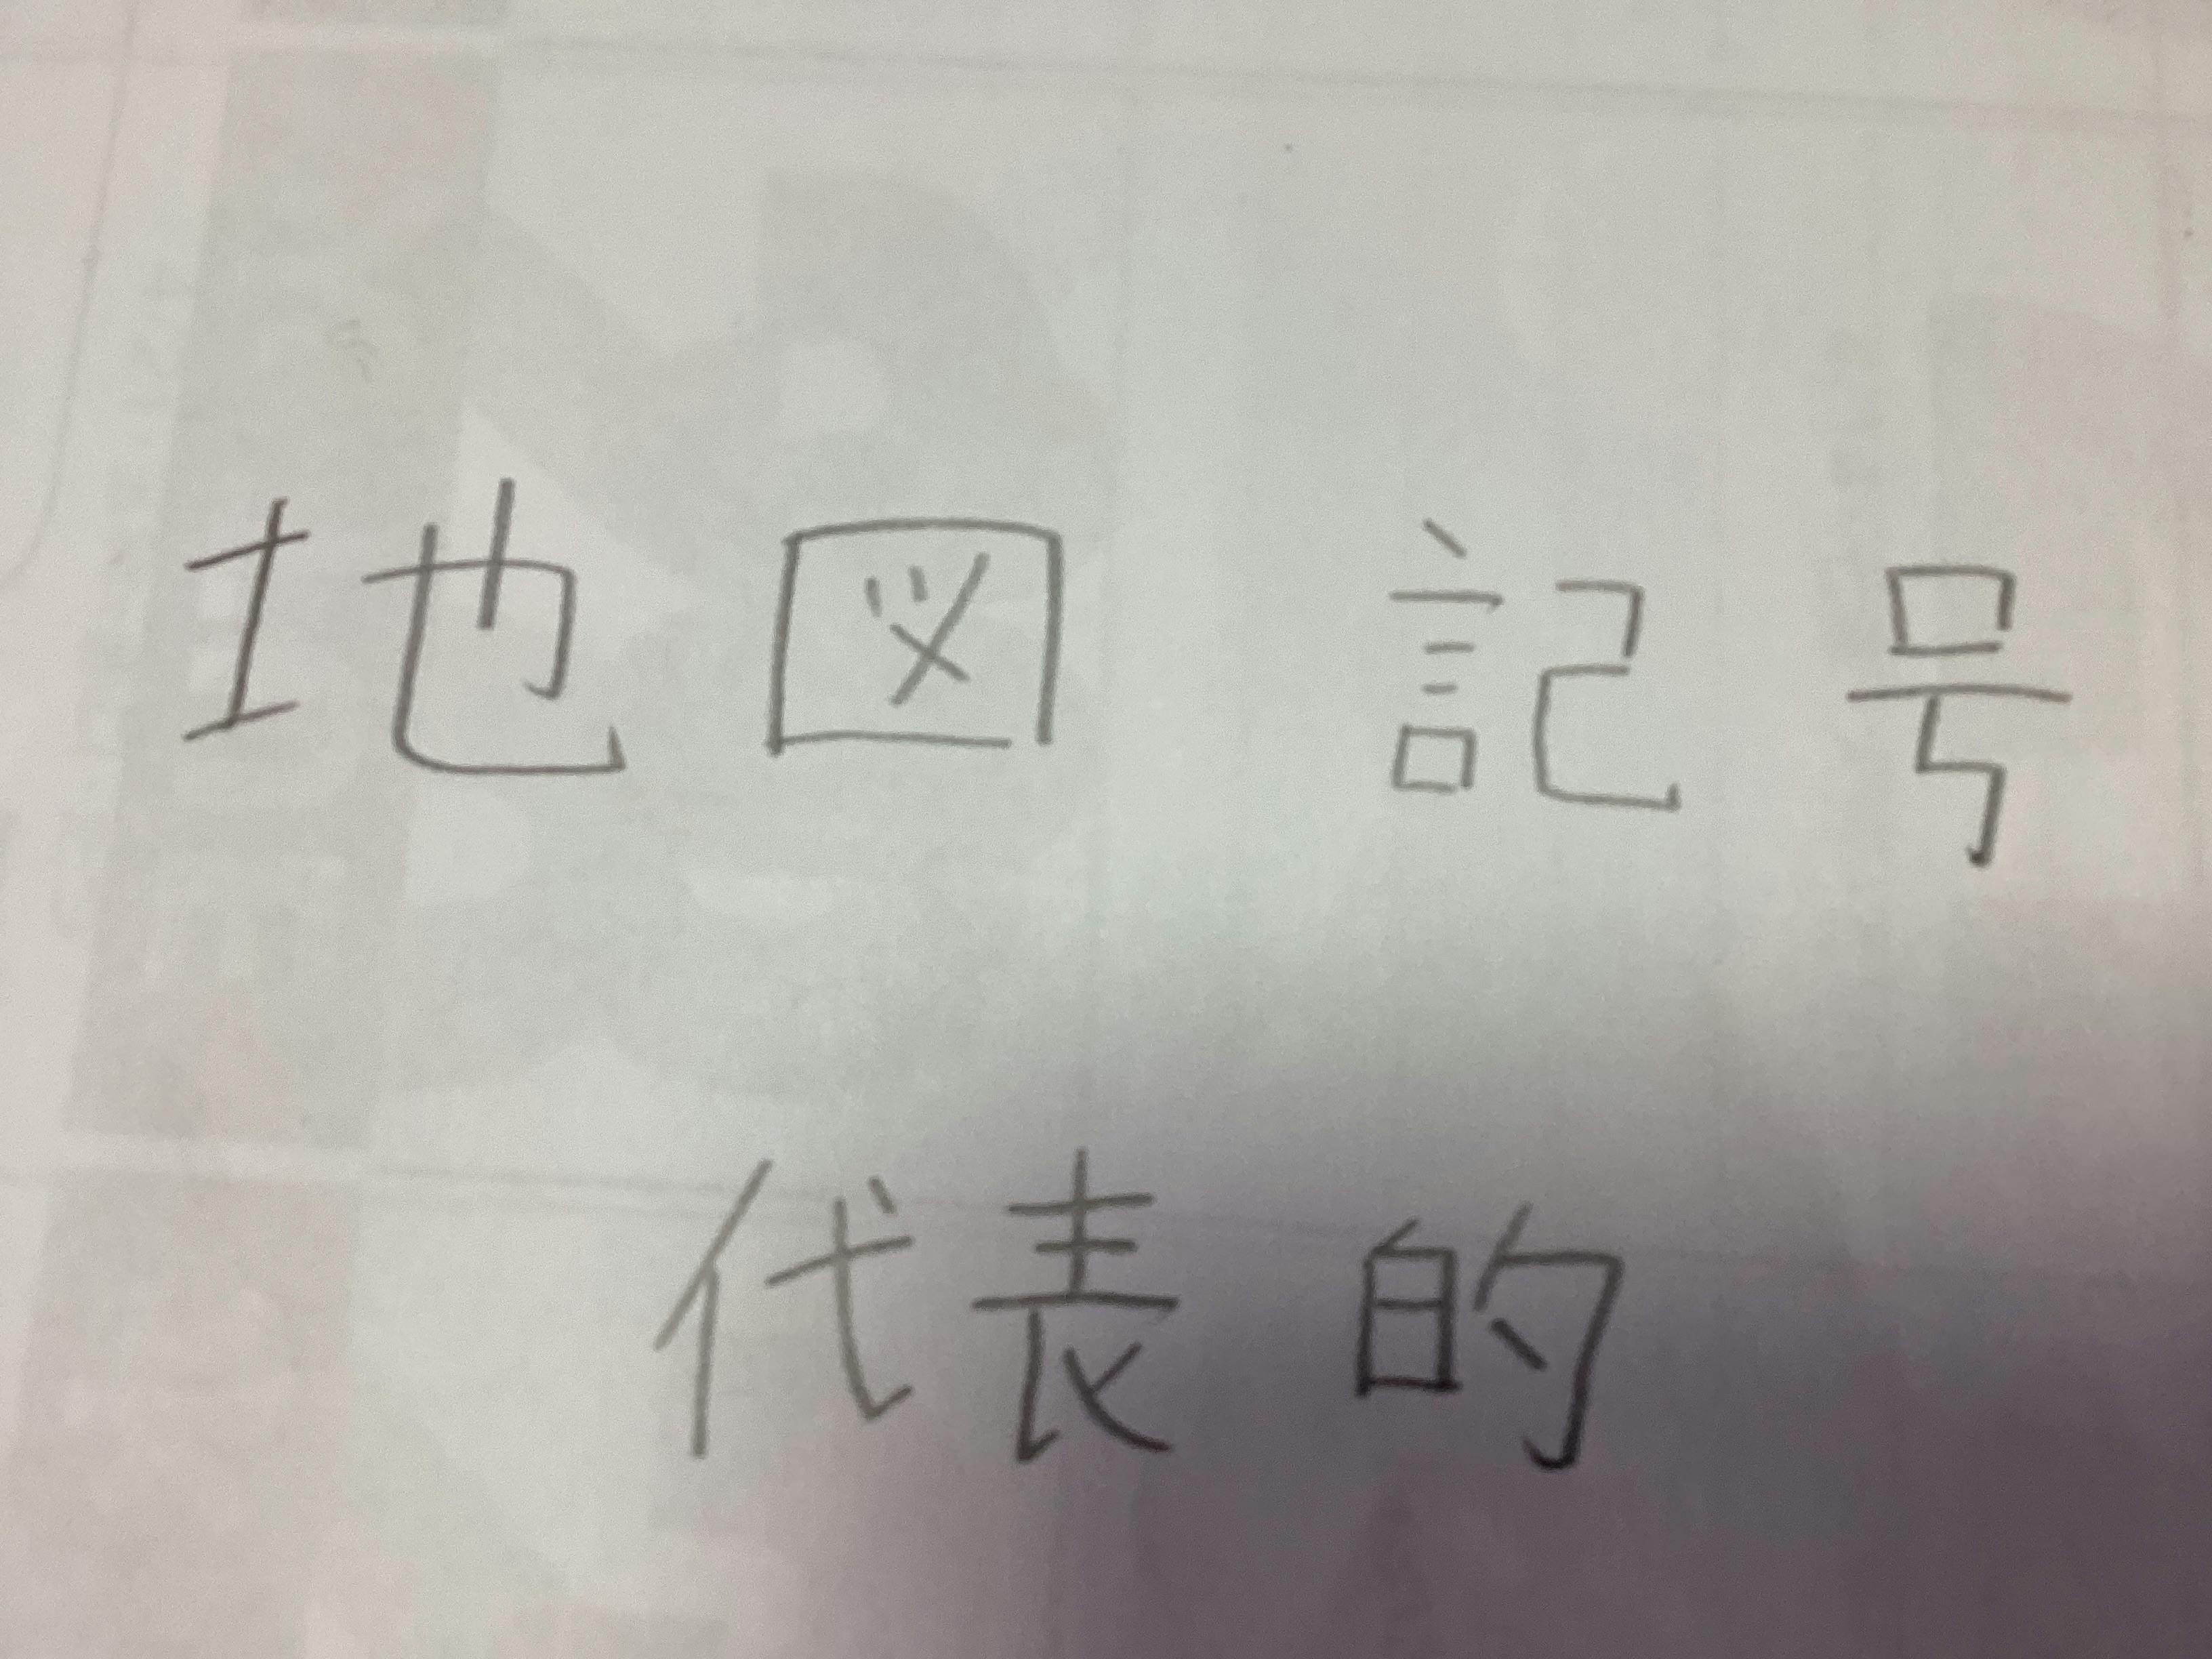 地図 記号
代表的